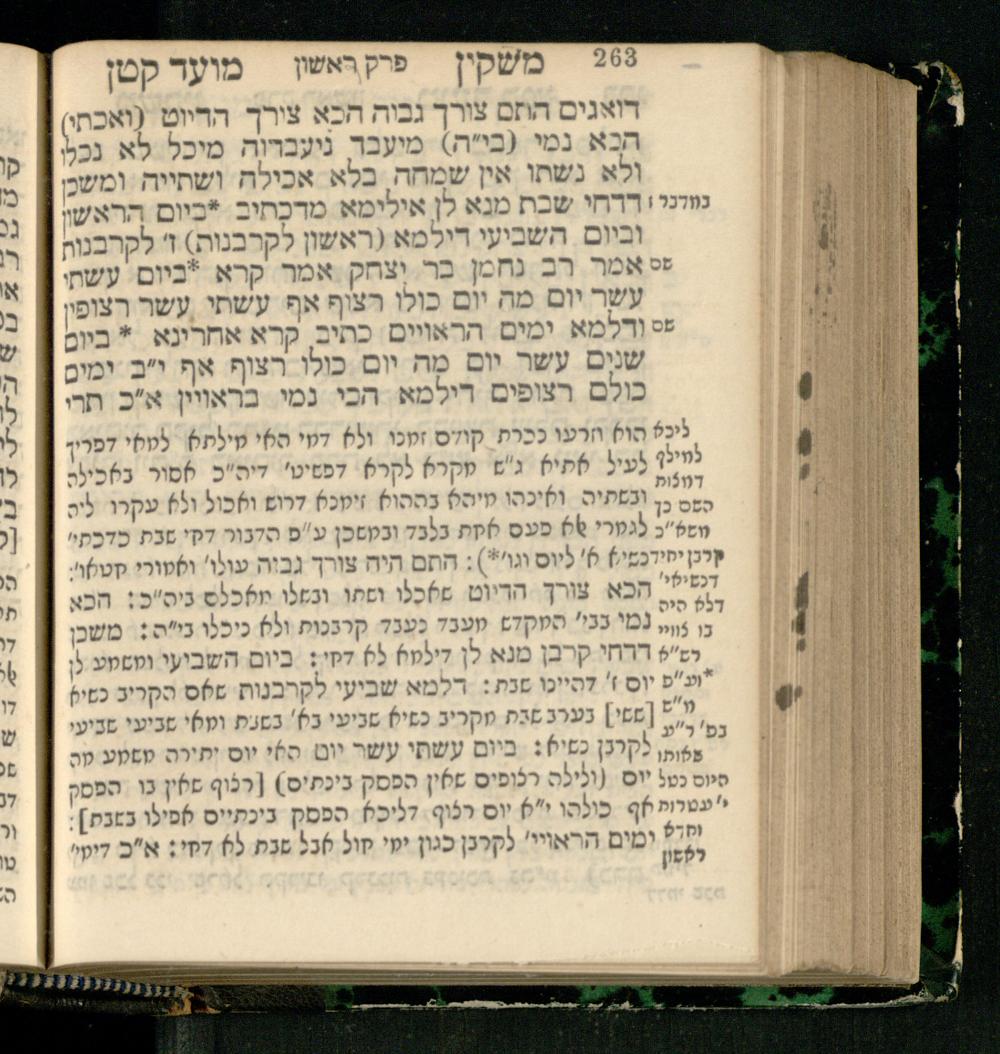 263 משקין פרק ראשון מועד קטן
דואגים התם צורך גבוה הכא צורך הדיוט (ואכתי)
הכא נמי (בי״ה) מיעבד ניעבדוה מיכל לא נכלו
ולא נשתו אין שמחה בלא אכילה ושתייה ומשכן
דדחי שבת מנא לן אילימא מדכתיב *ביום הראשון
וביום השביעי דילמא (ראשון לקרבנות) ז׳ לקרבנות
אמר רב נחמן בר יצחק אמר קרא *ביום עשתי
עשר יום מה יום כולו רצוף אף עשתי עשר רצופין
ודלמא ימים הראויים כתיב קרא אחרינא * ביום
שנים עשר יום מה יום כולו רצוף אף י״ב ימים
כולם רצופים דילמא הכי נמי בראויין א״כ תרי
הוא וזרעו נכרת קודם זמנו ולא דמי האי מילתא למאי דפריך
לעיל אתיא ג״ש מקרא לקרא דפשיט׳ דיה״כ אסור באכילה
ובשתיה ואינהו מיהא בההוא זימנא דרוש ואכול ולא עקרו ליה
לגמרי אלא פעם אחת בלבד ובמשכן ע״פ הדבור דחי שבת כדכתי׳
נשיא א׳ ליום וגו׳*): התם היה צורך גבוה עולו׳ ואמורי חטאו׳:
הכא צורך הדיוט שאכלו ושתו ובשלו מאכלם ביה״כ: הכא
נמי בבי׳ המקדש מעבד נעבד קרבנות ולא ניכלו בי״ה: משכן
דדחי קרבן מנא לן דילמא לא דחי: ביום השביעי ומשמע לן
יום ז׳ דהיינו שבת: דלמא שביעי לקרבנות שאם הקריב נשיא
[ששי] בערב שבת מקריב נשיא שביעי בא׳ בשבת ומאי שביעי שביעי
לקרבן נשיא: ביום עשתי עשר יום האי יום יתירה משמע מה
יום (ולילה רצופים שאין הפסק בינתים) [רצוף שאין בו הפסק
אף כולהו י״א יום רצוף דליכא הפסק בינתיים אפילו בשבת]:
ימים הראויי׳ לקרבן כגון ימי חול אבל שבת לא דחי: א״כ דימי׳
במדבר ז
שם
שם
ליכא
למילף
דמלות
השם כן
משא״כ
קרבן יחיד
דנשיאי׳
דלא היה
בו צוויי
רש״א
*וע״פ
מ״ש
בפ׳ ר״ע
מאותו
היום נטל
י׳ עטרות
וחדא
ראשון